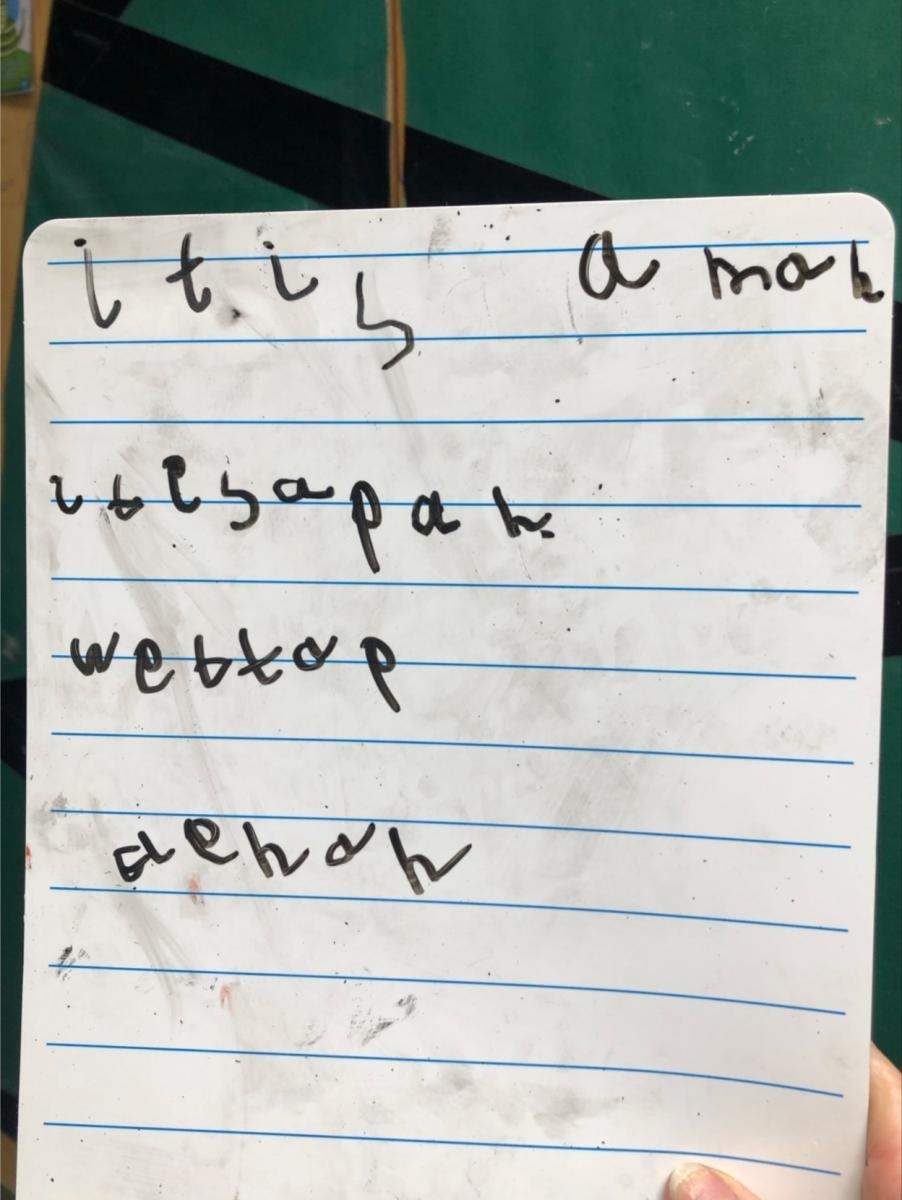 it is a man
itisapan
wettap
aenan